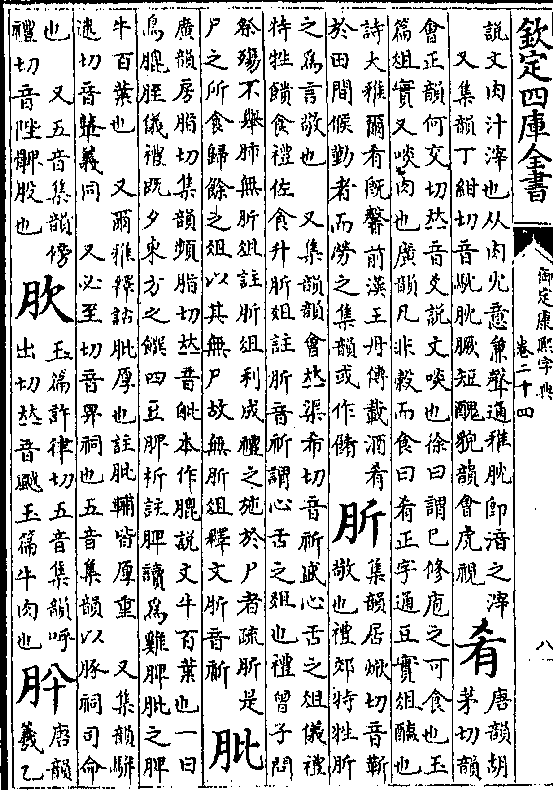 欽定四庫全書
御定康熙字典
卷二十四
八
説文肉汁滓也从肉冘意兼聲通雅肬即湆之滓
又集韻丁紺切音馾肬𦠄短醜貌韻會虎視
肴
唐韻胡
茅切韻
會正韻何交切𠀤音爻説文啖也徐曰謂已修庖之可食也玉
篇俎實又啖肉也廣韻凡非穀而食曰肴正字通豆實葅醢也
詩大雅爾肴既馨前漢王丹傳載酒肴
於田間候勤者而勞之集韻或作餚
肵
集韻居焮切音靳
敬也禮郊特牲肵
之為言敬也 又集韻韻會𠀤渠希切音祈盛心舌之俎儀禮
特牲饋食禮佐食升肵俎註肵音祈謂心舌之俎也禮曾子問
祭殤不舉肺無肵俎註肵俎利成禮之施於尸者疏肵是
尸之所食歸餘之俎以其無尸故無肵俎釋文肵音祈
肶
廣韻房脂切集韻頻脂切𠀤音毗本作膍説文牛百葉也一曰
鳥膍胵儀禮既夕東方之饌四豆脾析註脾讀為雞脾肶之脾
牛百葉也 又爾雅釋詁肶厚也註肶輔皆厚重 又集韻駢
迷切音鼙義同 又必至切音畀祠也五音集韻以豚祠司命
也 又五音集韻傍
禮切音陛髀股也
肷
玉篇許律切五音集韻呼
出切𠀤音颰玉篇牛肉也
肸
唐韻
羲乙